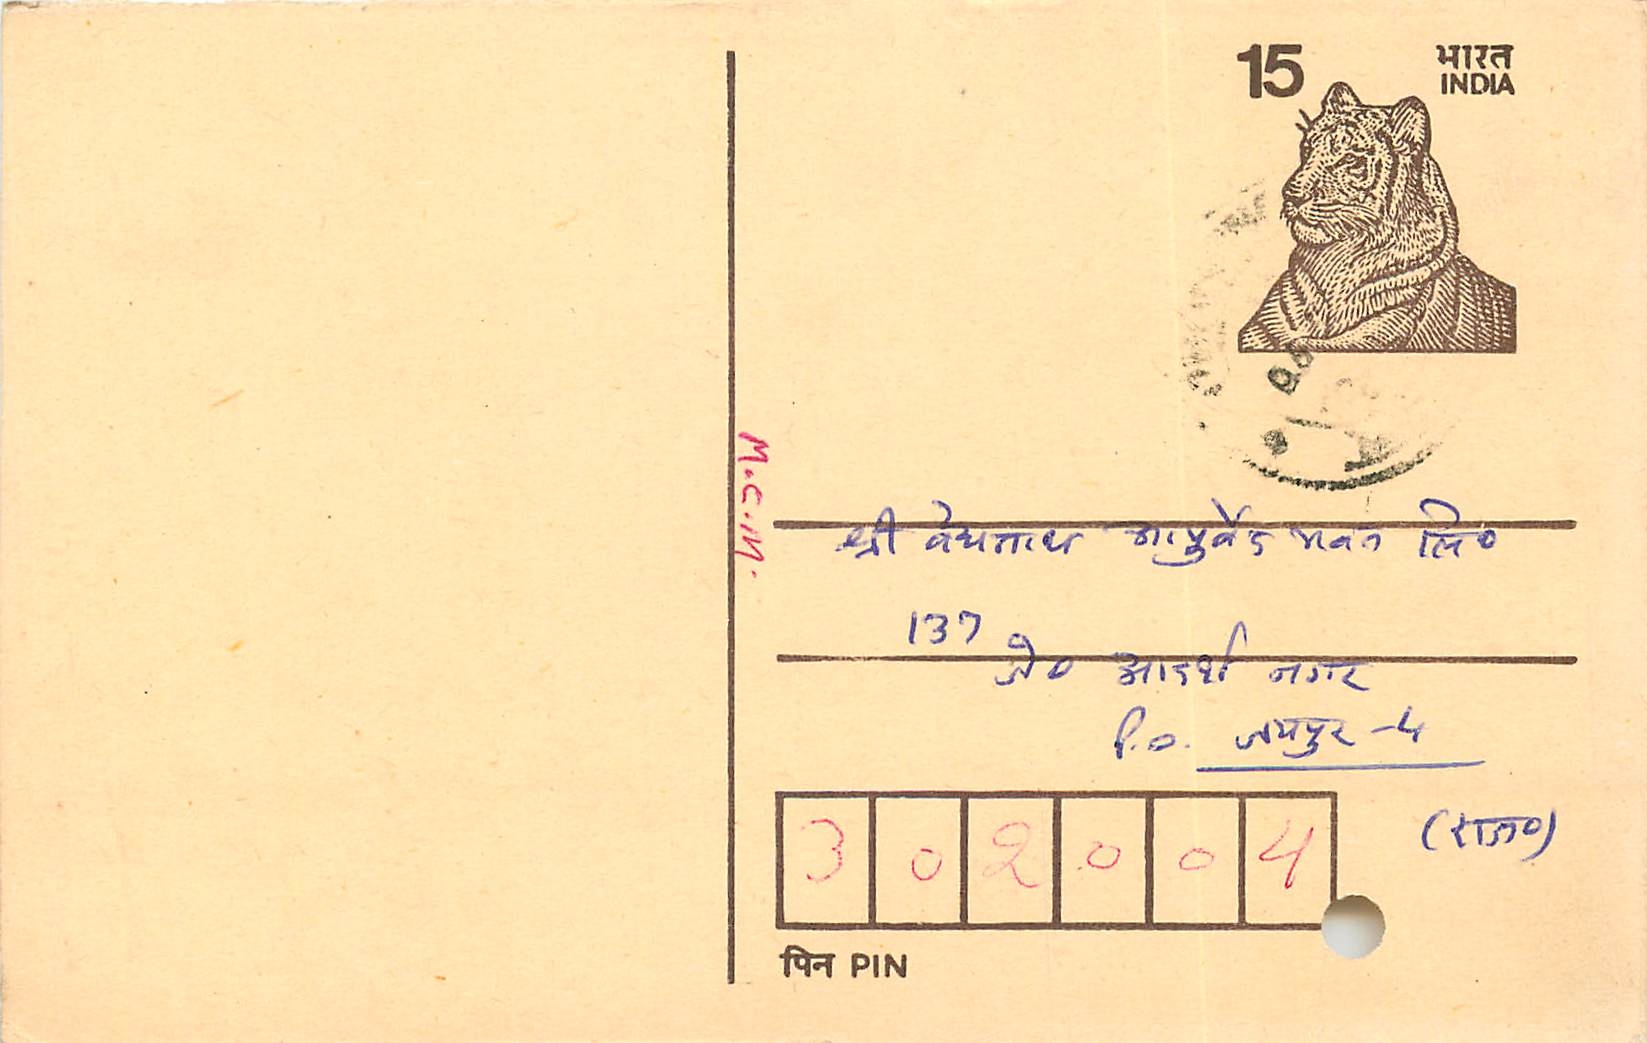 15
भारत
INDIA
M.C.M.
श्री वैद्यनाथ आयुर्वेद भवन लि०
137
जे० आदर्श नगर
P.O. जयपुर-4
(राज०)
3 0 2 0 0 4
पिन PIN